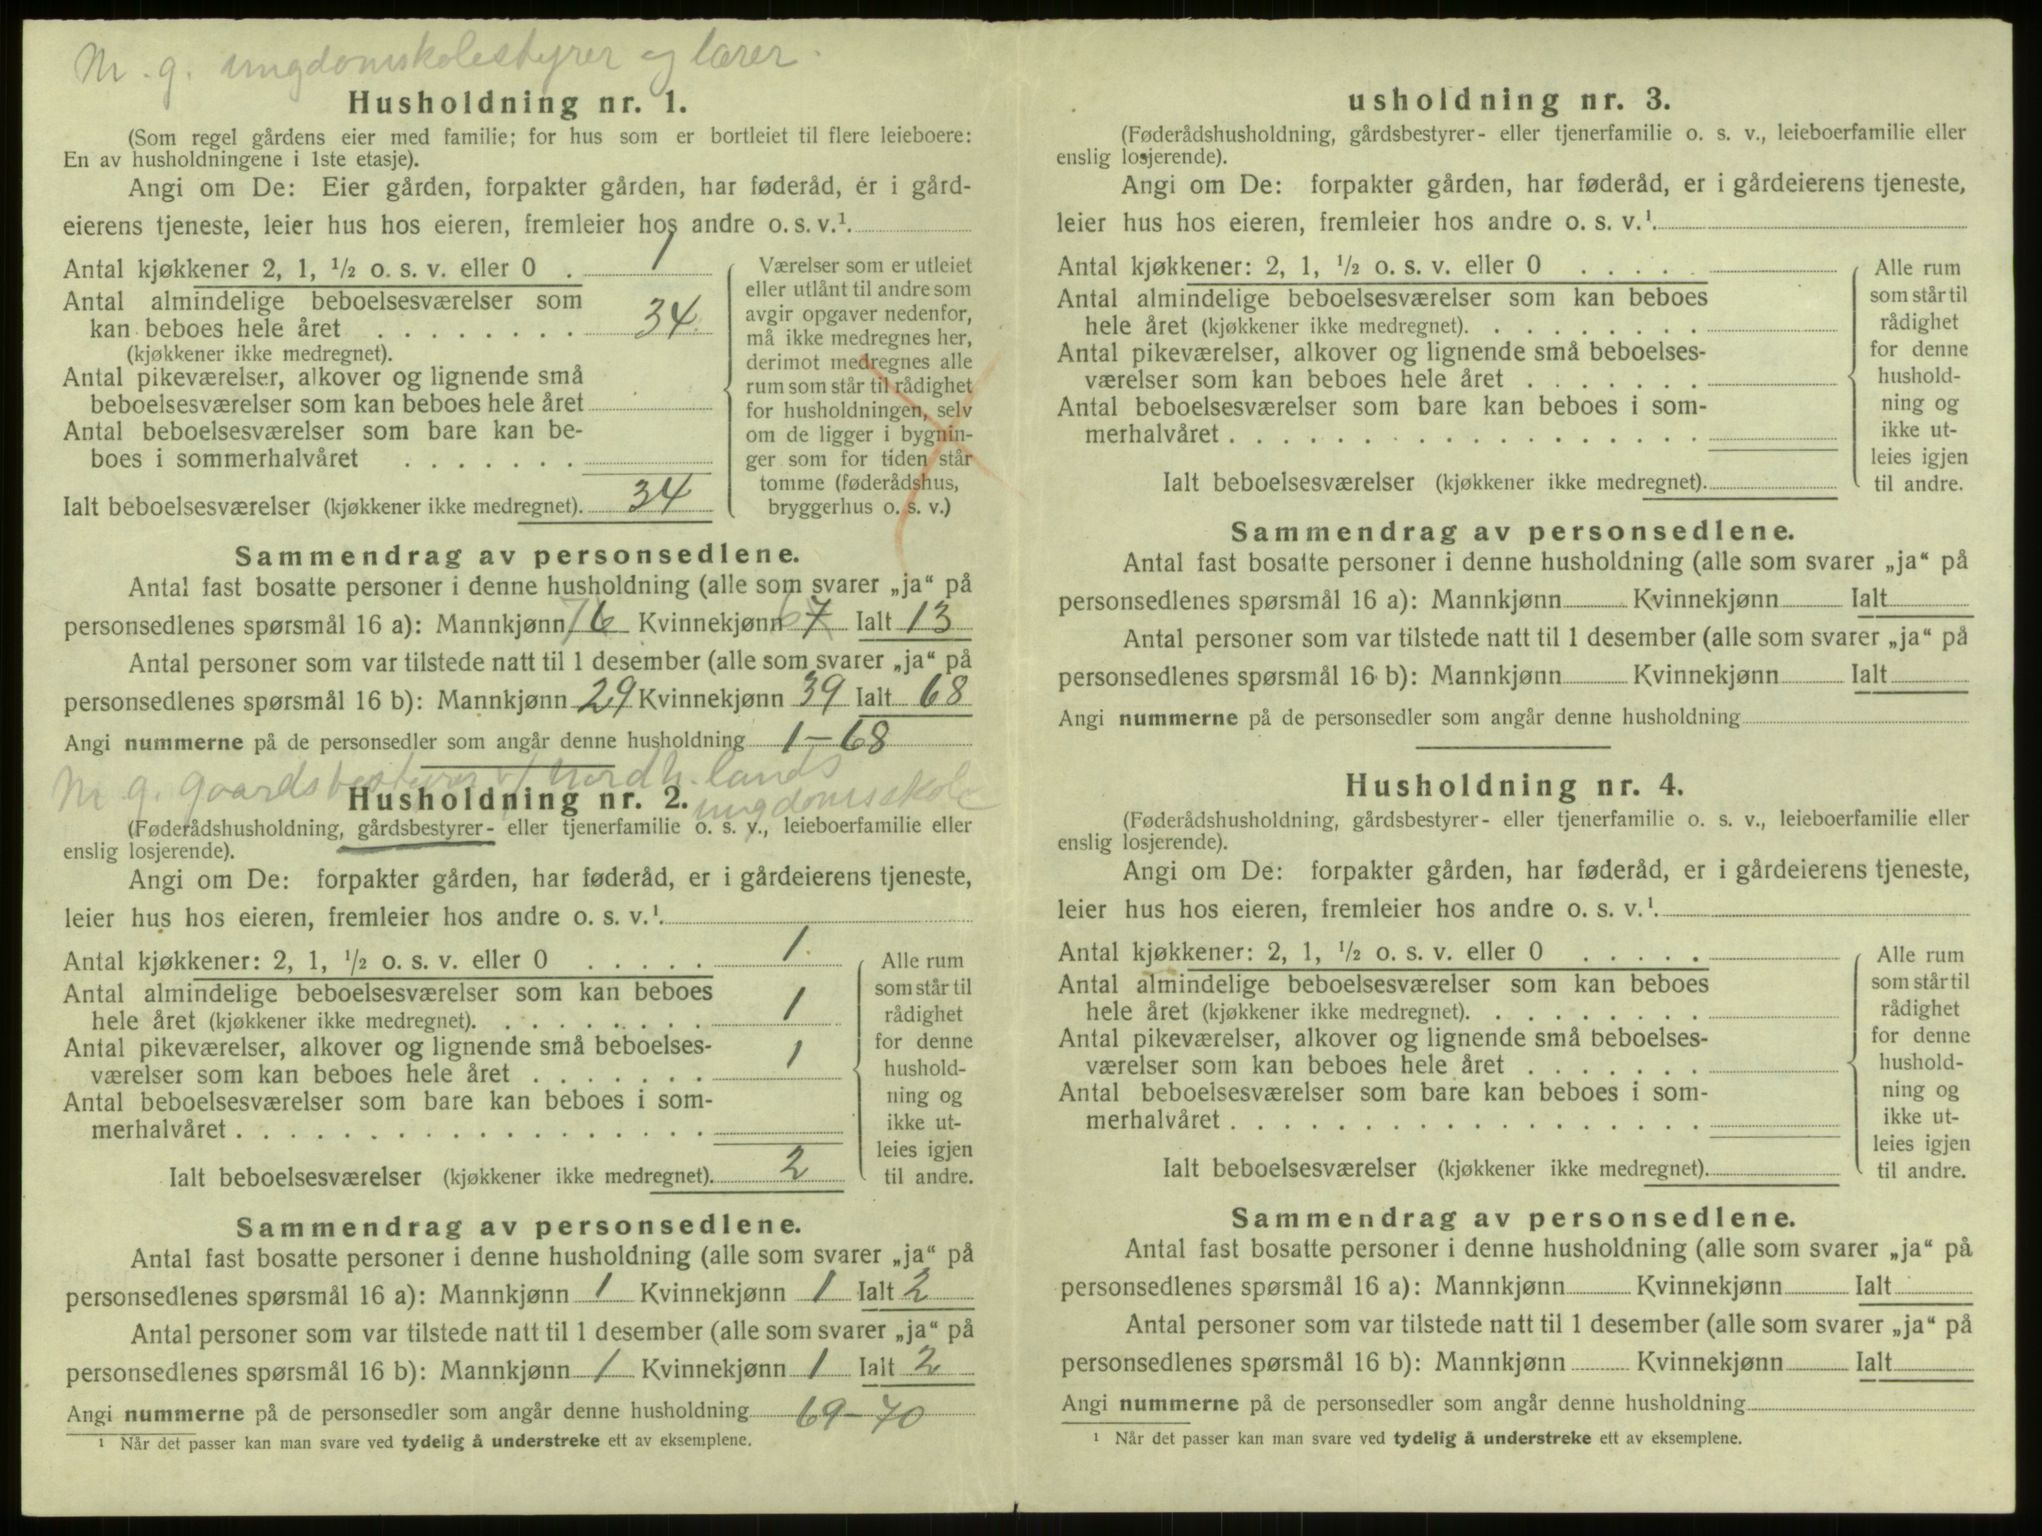 M. g. ungdomskolestyrer og lærer.
Husholdning nr. 1.
(Som regel gårdens eier med familie; for hus som er bortleiet til flere leieboere:
En av husholdningene i 1ste etasje).
Angi om De: Eier gården, forpakter gården, har føderåd, er i gård-
eierens tjeneste, leier hus hos eieren, fremleier hos andre o. s. v.¹.
Antal kjøkkener 2, 1, ½ o. s. v. eller 0 . 1
Antal almindelige beboelsesværelser som
kan beboes hele året . . . . . . . . 34
(kjøkkener ikke medregnet).
Antal pikeværelser, alkover og lignende små
beboelsesværelser som kan beboes hele året
Antal beboelsesværelser som bare kan be-
boes i sommerhalvåret . . . . . . .
Ialt beboelsesværelser (kjøkkener ikke medregnet). 34
Værelser som er utleiet
eller utlånt til andre som
avgir opgaver nedenfor,
må ikke medregnes her,
derimot medregnes alle
rum som står til rådighet
for husholdningen, selv
om de ligger i bygnin-
ger som for tiden står
tomme (føderådshus,
bryggerhus o. s. v.)
Sammendrag av personsedlene.
Antal fast bosatte personer i denne husholdning (alle som svarer „ja“ på
personsedlenes spørsmål 16 a): Mannkjønn 7 6 Kvinnekjønn 6 7 Ialt 13
Antal personer som var tilstede natt til 1 desember (alle som svarer „ja“ på
personsedlenes spørsmål 16 b): Mannkjønn 29 Kvinnekjønn 39 Ialt 68
Angi nummerne på de personsedler som angår denne husholdning 1–68
M. g. gaardsbestyrer v/ Nordh.lands
ungdomsskole
Husholdning nr. 2.
(Føderådshusholdning, gårdsbestyrer- eller tjenerfamilie o. s. v., leieboerfamilie eller
enslig losjerende).
Angi om De: forpakter gården, har føderåd, er i gårdeierens tjeneste,
leier hus hos eieren, fremleier hos andre o. s. v.¹.
Antal kjøkkener: 2, 1, ½ o. s. v. eller 0 . . . . . 1
Antal almindelige beboelsesværelser som kan beboes
hele året (kjøkkener ikke medregnet). . . . . . . . . 1
Antal pikeværelser, alkover og lignende små beboelses-
værelser som kan beboes hele året . . . . . . . 1
Antal beboelsesværelser som bare kan beboes i som-
merhalvåret . . . . . . . . . . . . . . . . . .
Ialt beboelsesværelser (kjøkkener ikke medregnet). 2
Alle rum
som står til
rådighet
for denne
hushold-
ning og
ikke ut-
leies igjen
til andre.
Sammendrag av personsedlene.
Antal fast bosatte personer i denne husholdning (alle som svarer „ja“ på
personsedlenes spørsmål 16 a): Mannkjønn 1 Kvinnekjønn 1 Ialt 2
Antal personer som var tilstede natt til 1 desember (alle som svarer „ja“ på
personsedlenes spørsmål 16 b): Mannkjønn 1 Kvinnekjønn 1 Ialt 2
Angi nummerne på de personsedler som angår denne husholdning 69–70
¹ Når det passer kan man svare ved tydelig å understreke ett av eksemplene.
usholdning nr. 3.
(Føderådshusholdning, gårdsbestyrer- eller tjenerfamilie o. s. v., leieboerfamilie eller
enslig losjerende).
Angi om De: forpakter gården, har føderåd, er i gårdeierens tjeneste,
leier hus hos eieren, fremleier hos andre o. s. v.¹.
Antal kjøkkener: 2, 1, ½ o. s. v. eller 0 . . . . .
Antal almindelige beboelsesværelser som kan beboes
hele året (kjøkkener ikke medregnet). . . . . . . . .
Antal pikeværelser, alkover og lignende små beboelses-
værelser som kan beboes hele året . . . . . . .
Antal beboelsesværelser som bare kan beboes i som-
merhalvåret . . . . . . . . . . . . . . . . . .
Ialt beboelsesværelser (kjøkkener ikke medregnet).
Alle rum
som står til
rådighet
for denne
hushold-
ning og
ikke ut-
leies igjen
til andre.
Sammendrag av personsedlene.
Antal fast bosatte personer i denne husholdning (alle som svarer „ja“ på
personsedlenes spørsmål 16 a): Mannkjønn Kvinnekjønn Ialt
Antal personer som var tilstede natt til 1 desember (alle som svarer „ja“ på
personsedlenes spørsmål 16 b): Mannkjønn Kvinnekjønn Ialt
Angi nummerne på de personsedler som angår denne husholdning
Husholdning nr. 4.
(Føderådshusholdning, gårdsbestyrer- eller tjenerfamilie o. s. v., leieboerfamilie eller
enslig losjerende).
Angi om De: forpakter gården, har føderåd, er i gårdeierens tjeneste,
leier hus hos eieren, fremleier hos andre o. s. v.¹.
Antal kjøkkener: 2, 1, ½ o. s. v. eller 0 . . . . .
Antal almindelige beboelsesværelser som kan beboes
hele året (kjøkkener ikke medregnet). . . . . . . . .
Antal pikeværelser, alkover og lignende små beboelses-
værelser som kan beboes hele året . . . . . . .
Antal beboelsesværelser som bare kan beboes i som-
merhalvåret . . . . . . . . . . . . . . . . . .
Ialt beboelsesværelser (kjøkkener ikke medregnet).
Alle rum
som står til
rådighet
for denne
hushold-
ning og
ikke ut-
leies igjen
til andre.
Sammendrag av personsedlene.
Antal fast bosatte personer i denne husholdning (alle som svarer „ja“ på
personsedlenes spørsmål 16 a): Mannkjønn Kvinnekjønn Ialt
Antal personer som var tilstede natt til 1 desember (alle som svarer „ja“ på
personsedlenes spørsmål 16 b): Mannkjønn Kvinnekjønn Ialt
Angi nummerne på de personsedler som angår denne husholdning
¹ Når det passer kan man svare ved tydelig å understreke ett av eksemplene.